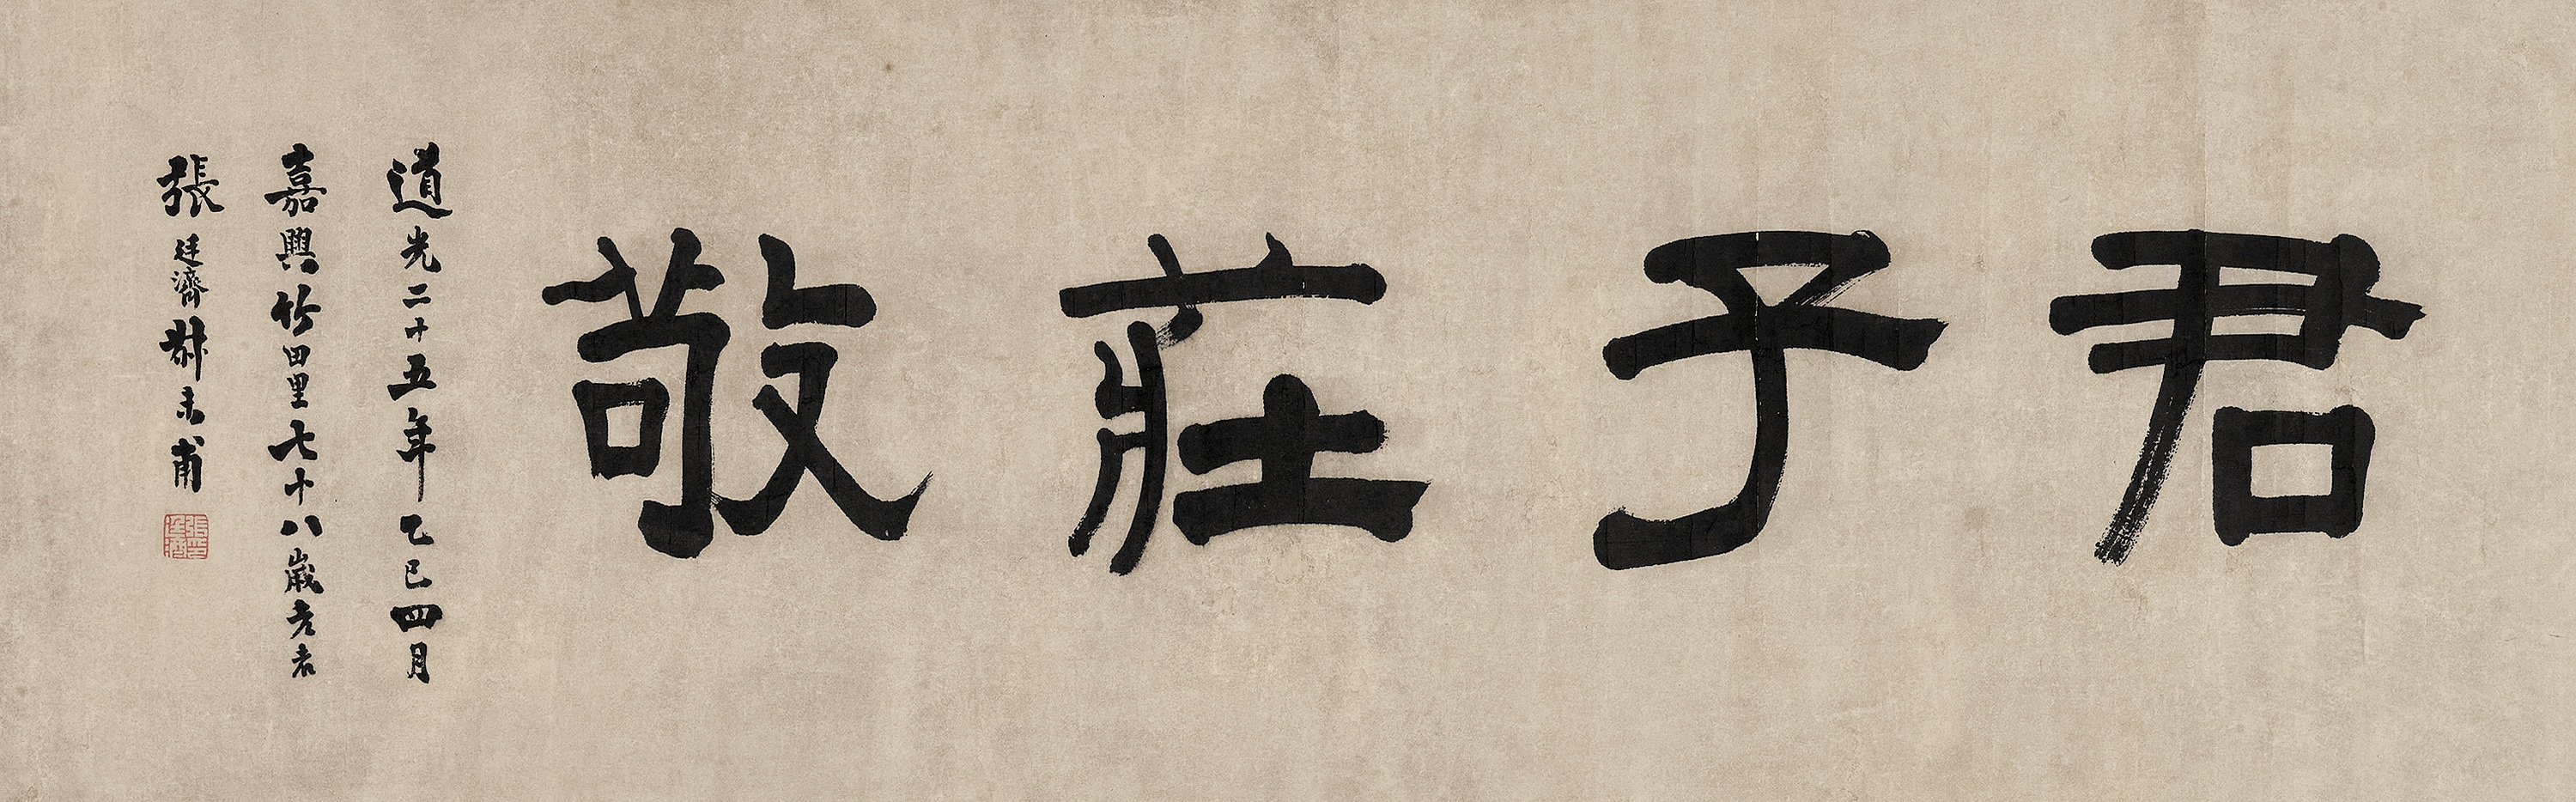 君子莊敬
道光二十五年乙巳四月
嘉興竹田里七十八歲老者
張廷濟叔未甫
張廷濟